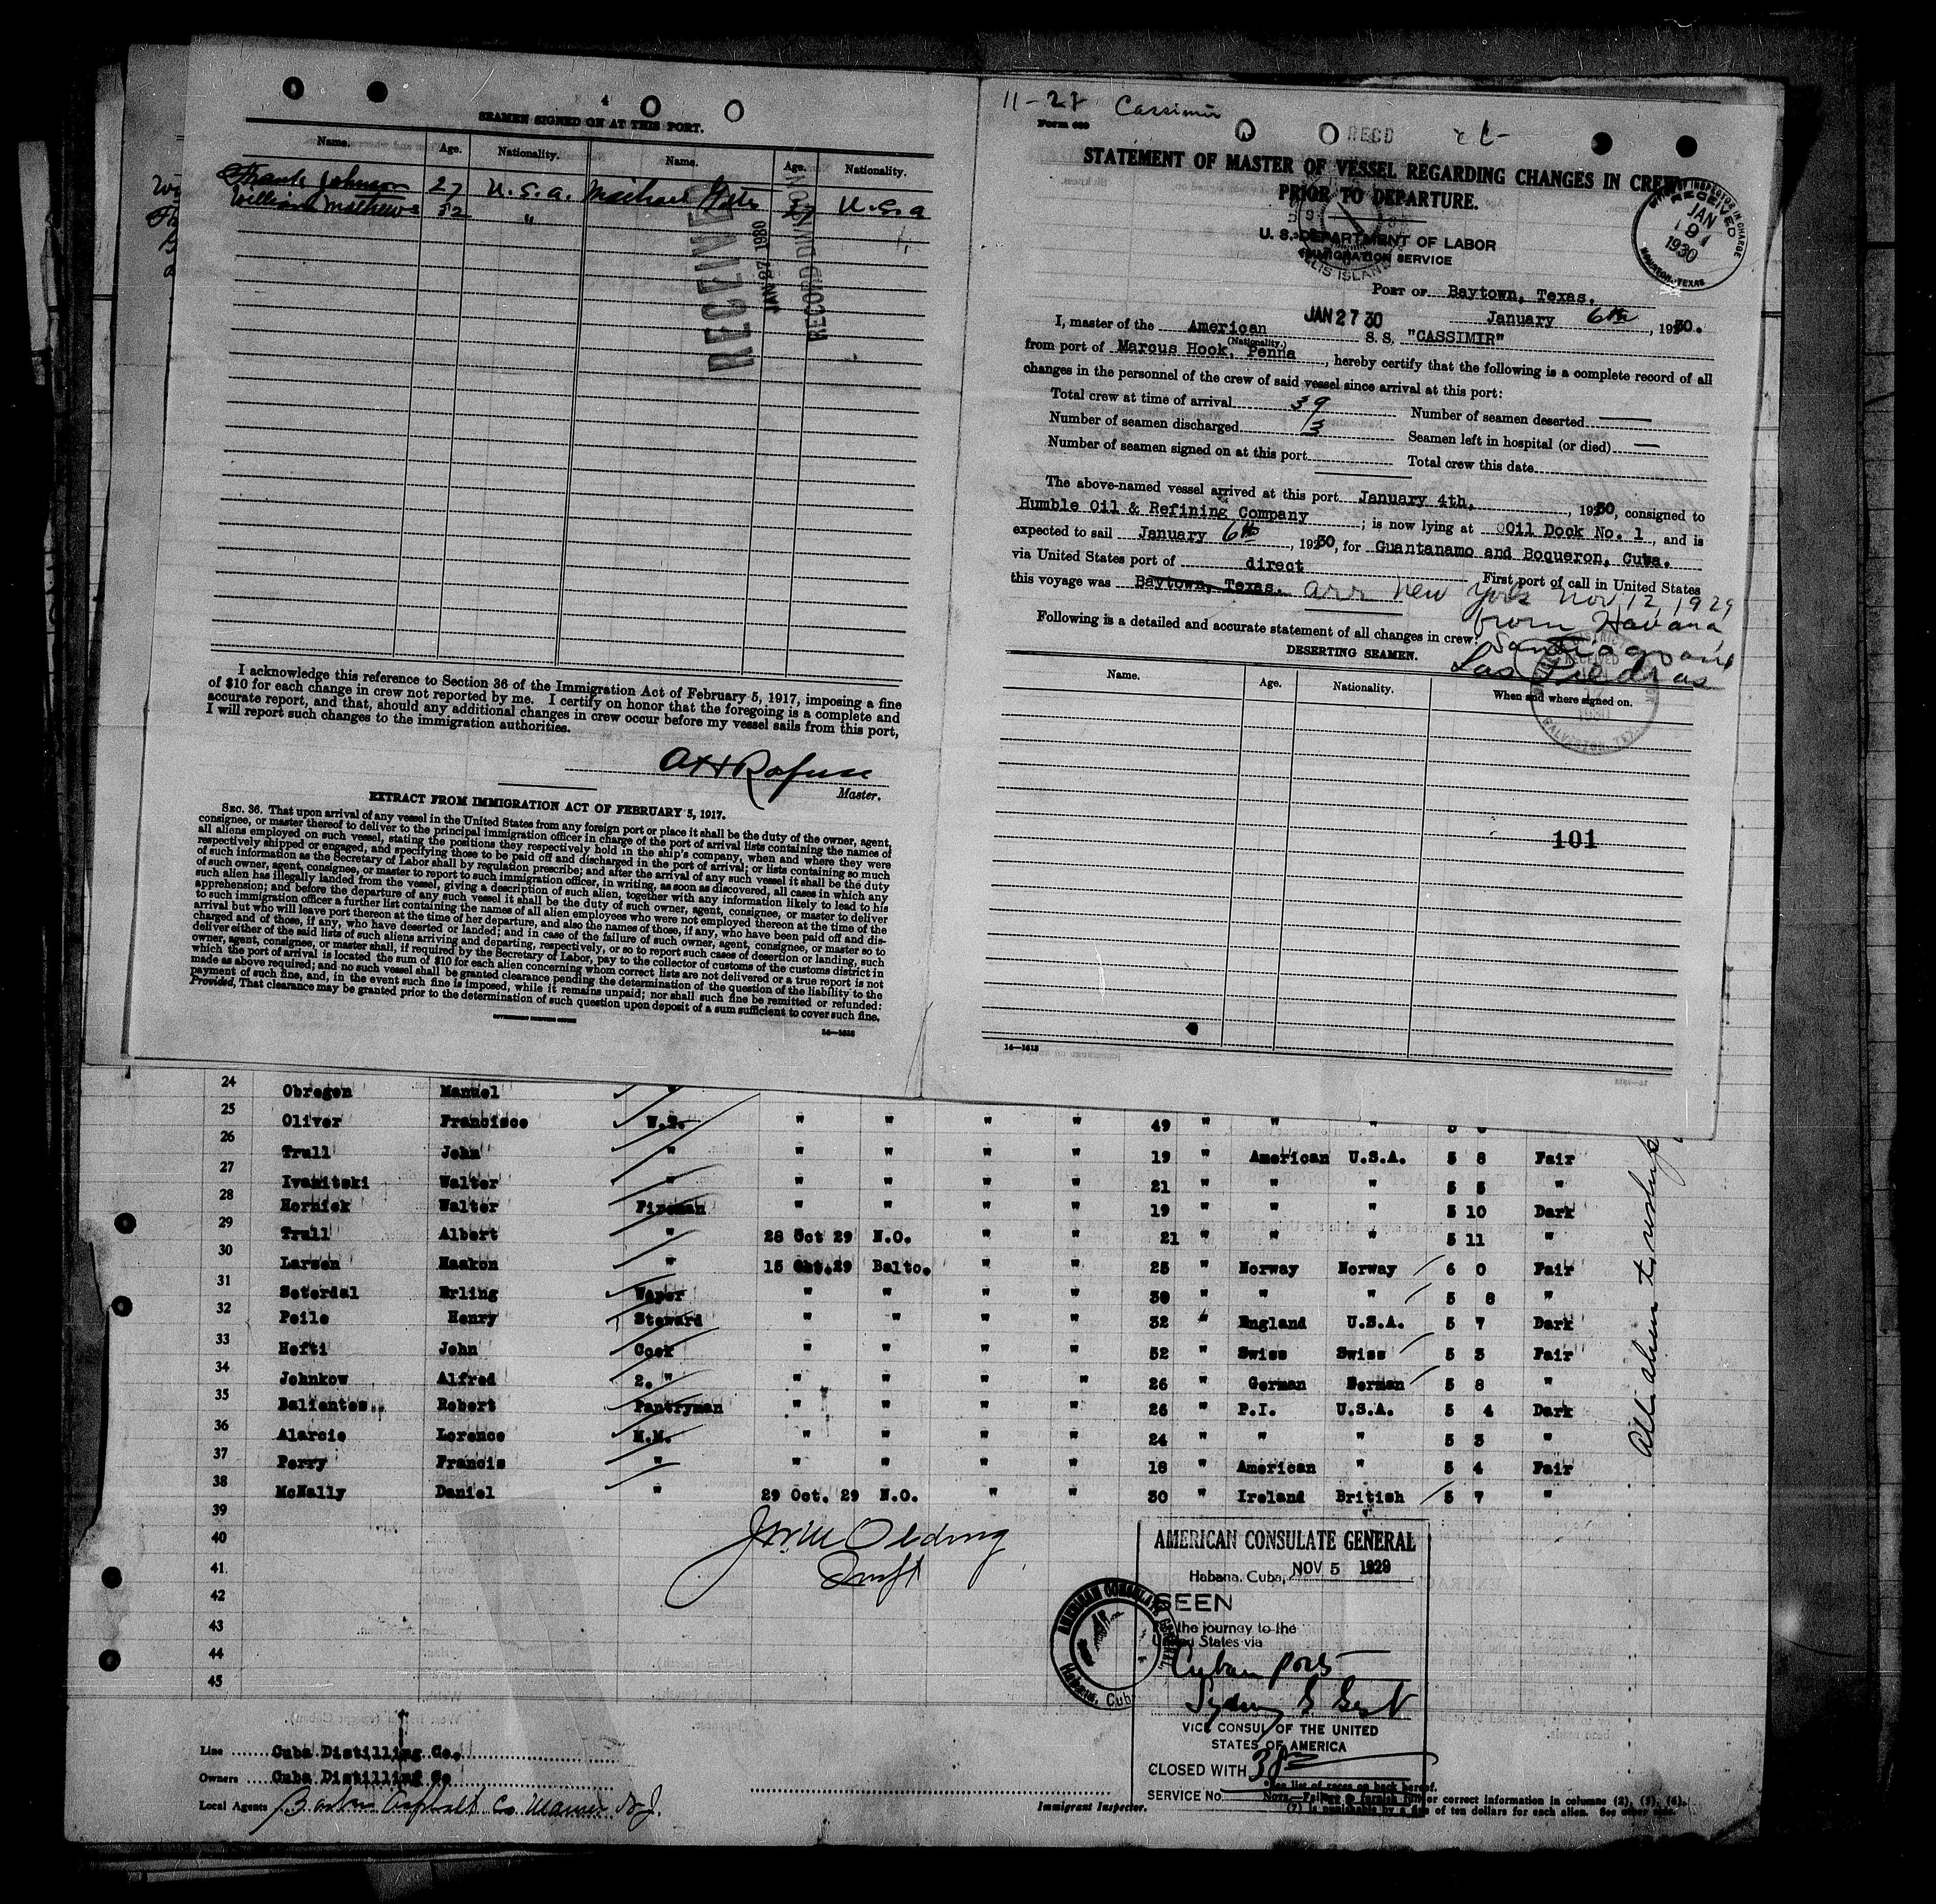 4
SEAMEN SIGNED ON AT THIS PORT.
Name. Age. Nationality. Name. Age. Nationality.
Frank Johnson 27 U.S.A. Michael 27 U.S.A
William Mathews 32 "
RECEIVED
JAN 27 1930
RECORD DIVISION
I acknowledge this reference to Section 36 of the Immigration Act of February 5, 1917, imposing a fine
of $10 for each change in crew not reported by me. I certify on honor that the foregoing is a complete and
accurate report, and that, should any additional changes in crew occur before my vessel sails from this port,
I will report such changes to the immigration authorities.
Master.
EXTRACT FROM IMMIGRATION ACT OF FEBRUARY 5, 1917.
SEC. 36. That upon arrival of any vessel in the United States from any foreign port or place it shall be the duty of the owner, agent,
consignee, or master thereof to deliver to the principal immigration officer in charge of the port of arrival lists containing the names of
all aliens employed on such vessel, stating the positions they respectively hold in the ship's company, when and where they were
respectively shipped or engaged, and specifying those to be paid off and discharged in the port of arrival; or lists containing so much
of such information as the Secretary of Labor shall by regulation prescribe; and after the arrival of any such vessel it shall be the duty
of such owner, agent, consignee, or master to report to such immigration officer, in writing, as soon as discovered, all cases in which any
such alien has illegally landed from the vessel, giving a description of such alien, together with any information likely to lead to his
apprehension; and before the departure of any such vessel it shall be the duty of such owner, agent, consignee, or master to deliver
to such immigration officer a further list containing the names of all alien employees who were not employed thereon at the time of the
arrival but who will leave port thereon at the time of her departure, and also the names of those, if any, who have been paid off and dis-
charged and of those, if any, who have deserted or landed; and in case of the failure of such owner, agent, consignee, or master so to
deliver either of the said lists of such aliens arriving and departing, respectively, or so to report such cases of desertion or landing, such
owner, agent, consignee, or master shall, if required by the Secretary of Labor, pay to the collector of customs of the customs district in
which the port of arrival is located the sum of $10 for each alien concerning whom correct lists are not delivered or a true report is not
made as above required; and no such vessel shall be granted clearance pending the determination of the question of the liability to the
payment of such fine, and, in the event such fine is imposed, while it remains unpaid; nor shall such fine be remitted or refunded:
Provided, That clearance may be granted prior to the determination of such question upon deposit of a sum sufficient to cover such fine.
GOVERNMENT PRINTING OFFICE
14—1618
11-28 Cassimir
Form 680
RECD
STATEMENT OF MASTER OF VESSEL REGARDING CHANGES IN CREW
PRIOR TO DEPARTURE.
U. S. DEPARTMENT OF LABOR
IMMIGRATION SERVICE
ELLIS ISLAND
INSPECTOR IN CHARGE
RECEIVED
JAN
9
1930
HOUSTON, TEXAS
PORT OF Baytown, Texas.
JAN 27 30
January 6th, 1930.
I, master of the American S. S. "CASSIMIR"
(Nationality.)
from port of Marcus Hook, Penna, hereby certify that the following is a complete record of all
changes in the personnel of the crew of said vessel since arrival at this port:
Total crew at time of arrival 39 Number of seamen deserted —
Number of seamen discharged 3 Seamen left in hospital (or died) —
Number of seamen signed on at this port Total crew this date
The above-named vessel arrived at this port January 4th, 1930, consigned to
Humble Oil & Refining Company; is now lying at Oil Dock No. 1, and is
expected to sail January 6th, 1930, for Guantanamo and Boqueron, Cuba.
via United States port of direct First port of call in United States
this voyage was Baytown, Texas. arr New York Nov, 12, 1929
from Havana
Santiago and
Las Piedras
Following is a detailed and accurate statement of all changes in crew:
DESERTING SEAMEN.
Name. Age. Nationality. When and where signed on.
RECEIVED
1930
GALVESTON, TEX
101
14—1618
24 Obregon Manuel "
25 Oliver Francisco W.T. " " " " 49 " " "
26 Trull John " " " " " 19 " American U.S.A. 5 8 Fair
27 Ivanitski Walter " " " " " 21 " " " 5 5 "
28 Hornick Walter Fireman " " " " 19 " " " 5 10 Dark
29 Trull Albert " 28 Oct 29 N.O. " " 21 " " " 5 11 "
30 Larsen Haakon " 15 Oct.29 Balto. " " 25 " Norway Norway 6 0 Fair
31 Seterdal Erling Wiper " " " " 30 " " " 5 8 "
32 Peile Henry Steward " " " " 32 " England U.S.A. 5 7 Dark
33 Hefti John Cook " " " " 52 " Swiss Swiss 5 3 Fair
34 Johnkow Alfred 2. " " " " " 26 " German German 5 8 "
35 Balientes Robert Pantryman " " " " 26 " P.I. U.S.A. 5 4 Dark
36 Alarcio Lorence M.M. " " " " 24 " " " 5 3 "
37 Perry Francis " " " " " 18 " American " 5 4 Fair
38 McNally Daniel " 29 Oct. 29 N.O. " " 30 " Ireland British 5 7 "
39
40
41
42
43
44
45
AMERICAN CONSULATE GENERAL
Habana, Cuba, NOV 5 1929
SEEN
the journey to the
United States via
Cuban ports
VICE CONSUL OF THE UNITED
STATES OF AMERICA
CLOSED WITH 38
SERVICE No.
AMERICAN CONSULATE GENERAL
Habana, Cuba
Line Cuba Distilling Co.
Owners Cuba Distilling Co
Local Agents Barber Asphalt Co N.J.
Immigrant Inspector.
* See list of races on back hereof.
NOTE.—Failure to furnish full or correct information in columns (2), (5), (6),
(7) is punishable by a fine of ten dollars for each alien. See other side.